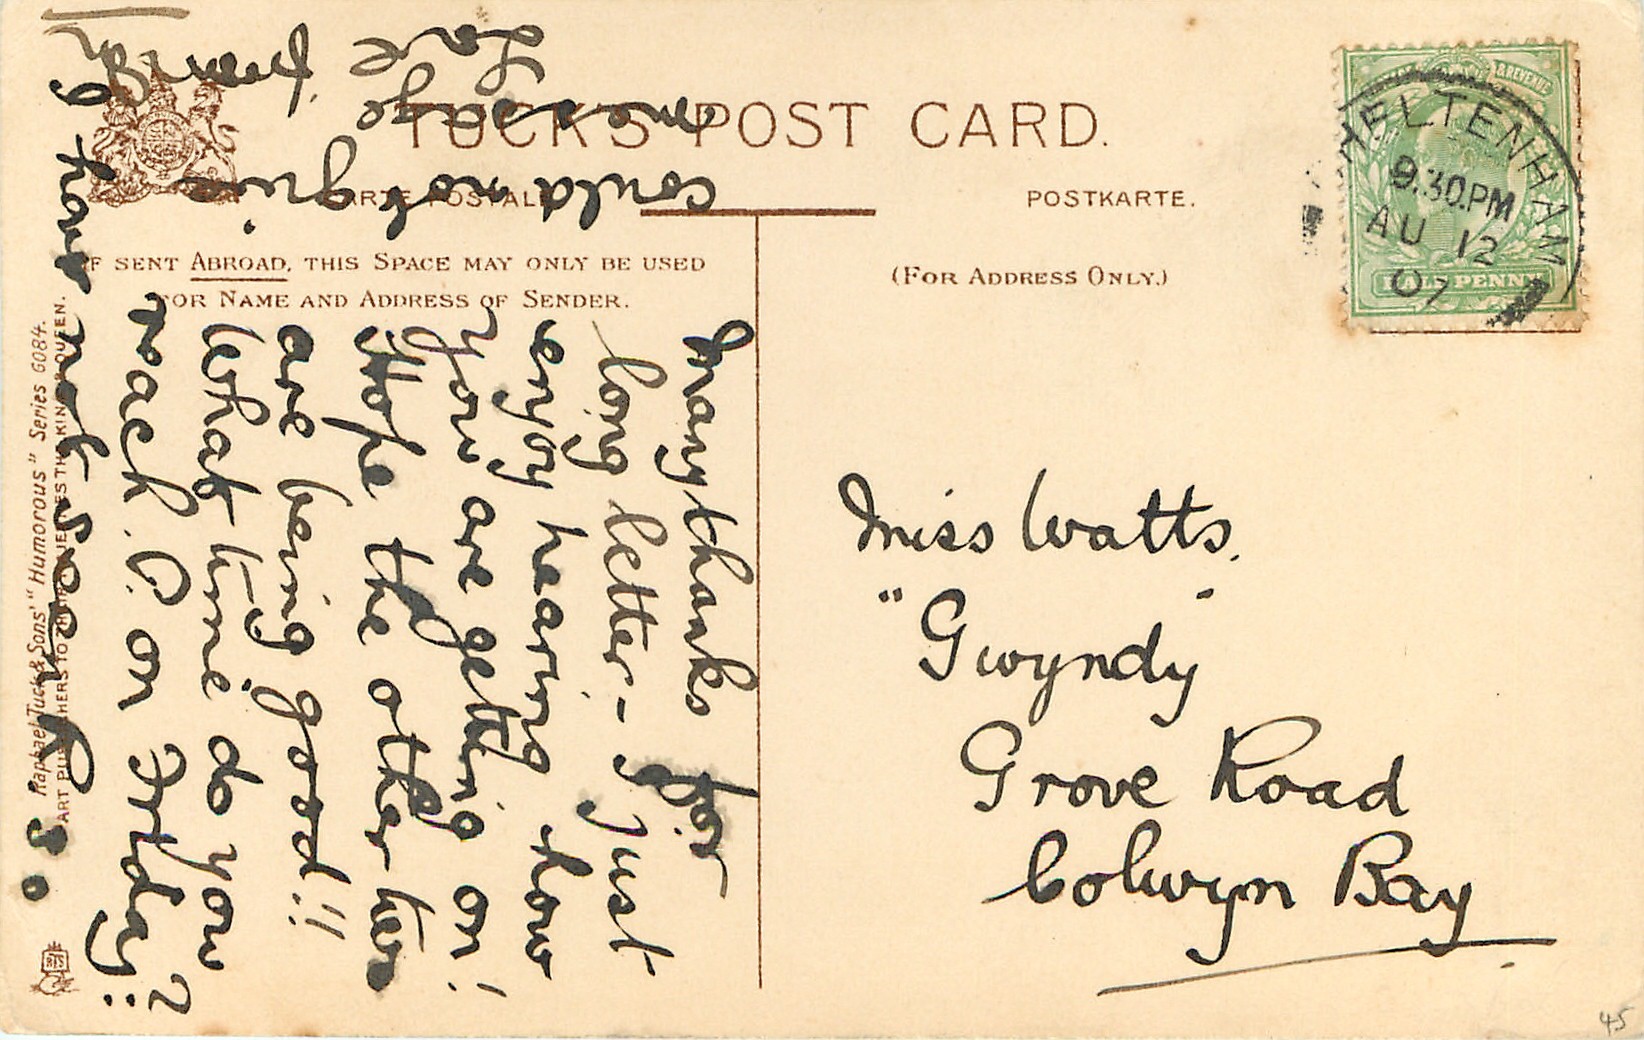 TUCK'S POST CARD.
CARTE POSTALE
POSTKARTE.
IF SENT ABROAD, THIS SPACE MAY ONLY BE USED
FOR NAME AND ADDRESS OF SENDER.
(FOR ADDRESS ONLY.)
& REVENUE
HALFPENNY
CHELTENHAM
9.30.PM
AU 12
07
Miss Watts.
"Gwyndy"
Grove Road
Colwyn Bay
Many thanks for
long letter - I just
enjoy hearing how
you are getting on!
Hope the other two
are being good!!
What time do you
reach C. on Friday?
I have not seen R so
could not give
message
Love from
Raphael Tuck & Sons' "Humorous" Series 6084.
ART PUBLISHERS TO THEIR MAJESTIES THE KING & QUEEN.
RTS
45